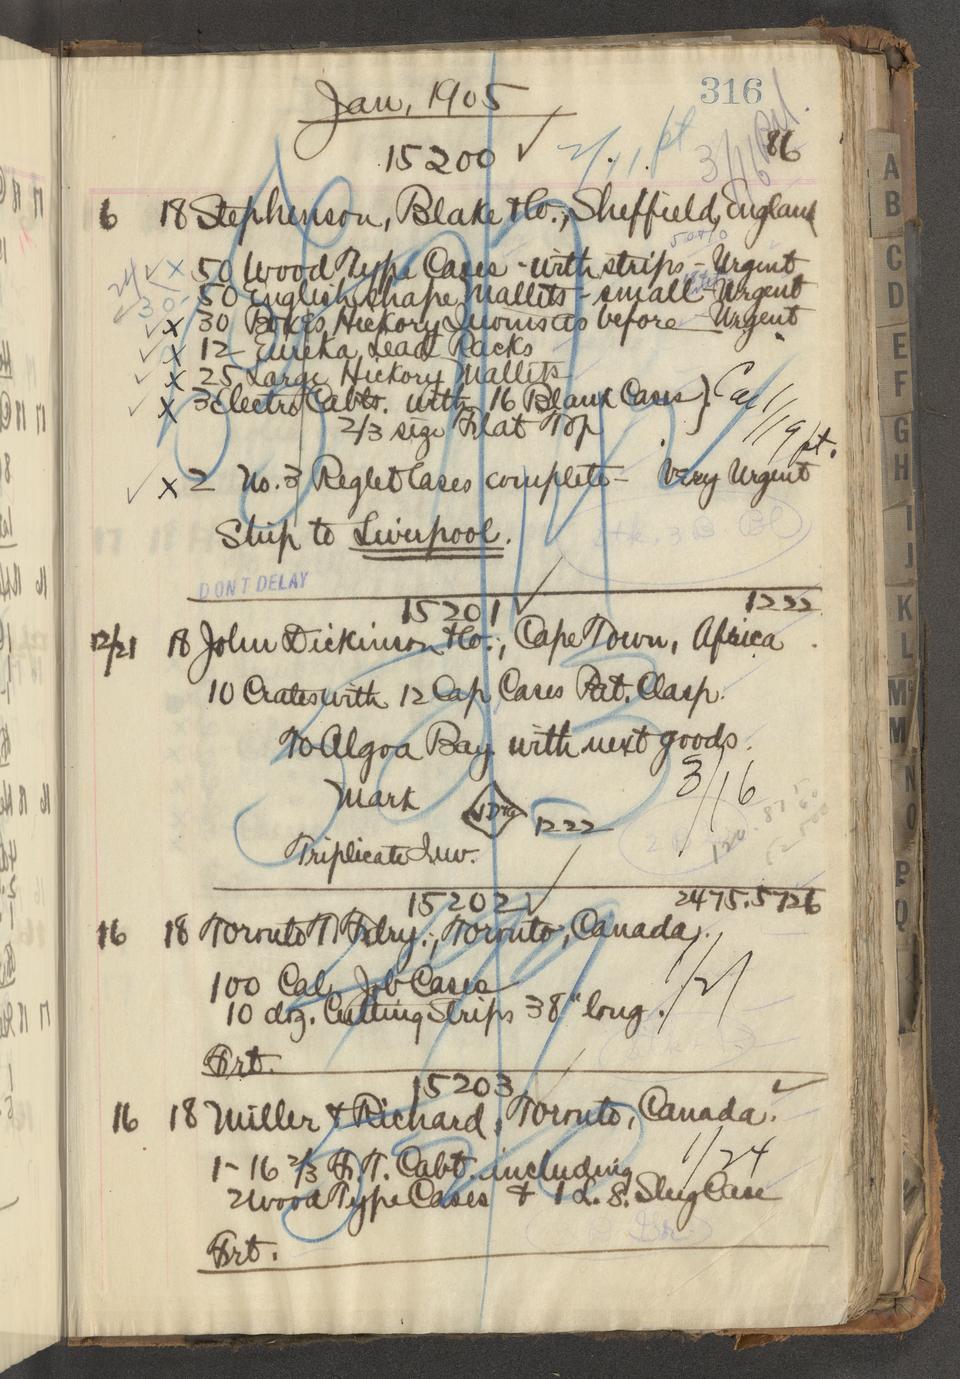 316
Jan, 1905
15200 86
6 18 Stephenson, Blake & Co., Sheffield, England
50 Wood Type Cases - with strips - Urgent
50 English shape Mallets - small - Urgent
x 30 Boxes Hickory Quoins as before - Urgent
x 12 Eureka Lead Racks
x 25 Large Hickory Mallets
x 3 Electro Cabts. with 16 Blank Cases } Cal
2/3 size Flat Top 1/19 pt.
x 2 No. 3 Reglet Cases complete - Very Urgent
Ship to Liverpool.
DONT DELAY
15201 1222
12/21 18 John Dickinson & Co., Cape Town, Africa
10 Crates with 12 Cap Cases Pat. Clasp.
To Algoa Bay with next goods.
3/16
Mark 1222
Triplicate Inv.
15202 2475.5726
16 18 Toronto T. Fdry., Toronto, Canada.
100 Cal. Job Cases 1/21
10 doz. Cutting Strips 38" long.
Frt.
15203
16 18 Miller & Richard, Toronto, Canada.
1/24
1- 16 2/3 F.T. Cabt. including
2 Wood Type Cases & 1 L.S. Slug Case
Frt.
A
B
C
D
E
F
G
H
I
J
K
L
M
M
N
O
P
Q